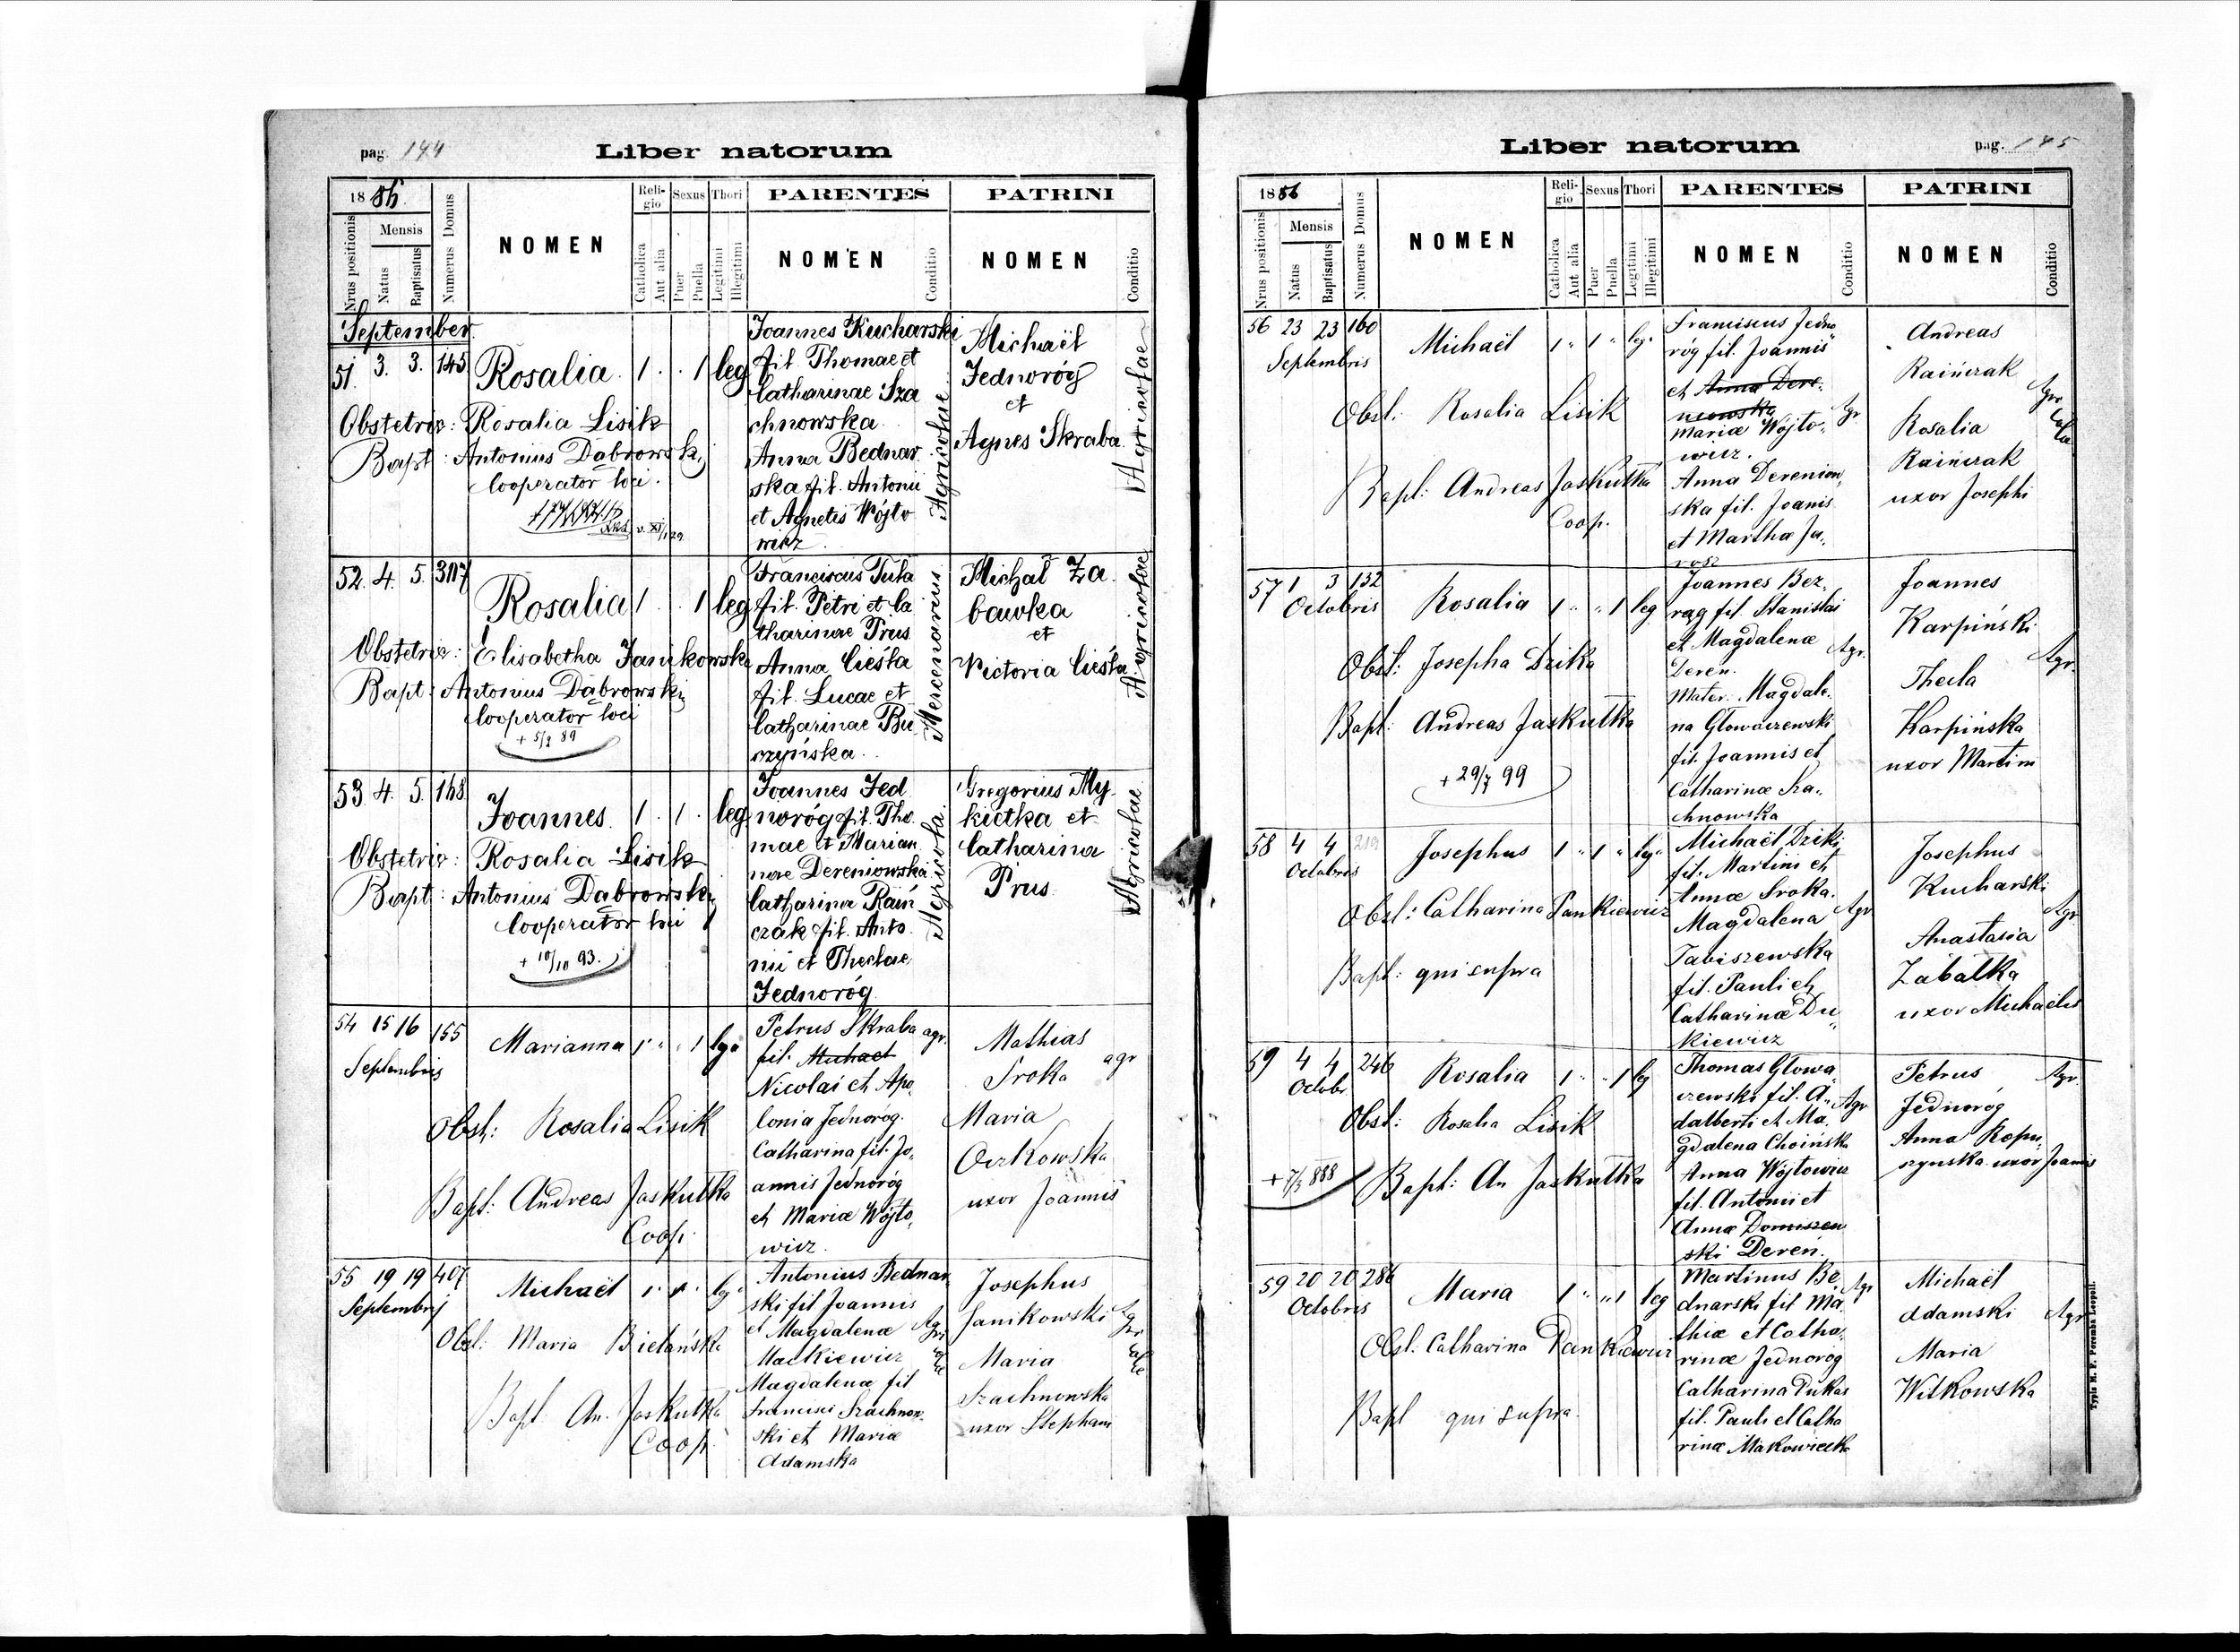 pag. 144 Liber natorum
1886.
Nrus positionis
Mensis
Natus
Baptisatus
Numerus Domus
NOMEN
Religio
Catholica
Aut alia
Sexus
Puer
Puella
Thori
Legitimi
Illegitimi
PARENTES
NOMEN
Conditio
PATRINI
NOMEN
Conditio
September.
51. 3. 3. 145 Rosalia. 1 . . 1 leg
Obstetrix: Rosalia Lisik
Bapt: Antonius Dąbrowski
Cooperator loci.
Joannes Kucharski
fil. Thomae et
Catharinae Sza
chnowska
Anna Bednar
ska fil. Antonii
et Agnetis Wójto
wicz.
Agricolae
Michaël
Jednoróg
et
Agnes Skraba.
Agricolae
52. 4. 5. 307 Rosalia 1 . . 1 leg
Obstetrix: Elisabetha Janikowska
Bapt: Antonius Dąbrowski
Cooperator loci
+ 5/2 89
Franciscus Tuła
fil. Petri et Ca
tharinae Prus
Anna Cieśla
fil. Lucae et
Catharinae Bu
czyńska.
Mercenarius
Michał Za
bawka
et
Victoria Cieśla
Agricolae
53. 4. 5. 168 Joannes. 1 . 1 . leg
Obstetrix: Rosalia Lisik
Bapt: Antonius Dąbrowski
Cooperator loci
+ 10/10 93.
Joannes Jed
noróg fil. Tho
mae et Marian
nae Dereniowska
Catharina Rain
czak fil. Anto
nii et Theclae
Jednoróg
Agricolai
Gregorius My
kietka et
Catharina
Prus
Agricolae
54 15 16 155 Marianna 1 " " 1 leg
Septembris
Obst: Rosalia Lisik
Bapt: Andreas Jaskułka
Coop.
Petrus Skraba agr.
fil. Michael
Nicolai et Apo
lonia Jednoróg.
Catharina fil. Jo,
annis Jednoróg
et Mariæ Wójto,
wicz.
Mathias
Sroka agr
Maria
Oczkowska
uxor Joannis
55 19 19 407 Michaël 1 " 1 " leg
Septembris
Obst: Maria Bielańska
Bapt: An. Jaskułka
Coop.
Antonius Bednar
ski fil Joannis
et Magdalenæ
Mackiewicz
Magdalena fil
Francisci Szachnow
ski et Mariæ
Adamska
Agri
colae
Josephus
Janikowski
Maria
Szachnowska
uxor Stephani
Agri
colae
Liber natorum pag. 145
1886
Nrus positionis
Mensis
Natus
Baptisatus
Numerus Domus
NOMEN
Religio
Catholica
Aut alia
Sexus
Puer
Puella
Thori
Legitimi
Illegitimi
PARENTES
NOMEN
Conditio
PATRINI
NOMEN
Conditio
56 23 23 160 Michaël 1 " 1 " leg.
Septembris
Obst: Rosalia Lisik
Bapt: Andreas Jaskułka
Coop.
Franciscus Jedno
róg fil. Joannis
et Anna Dere,
niowska
Mariæ Wójto,
wicz. Agr
Anna Dereniow,
ska fil. Joanis
et Martha Ja,
rosz
Andreas
Raińczak
Rosalia
Raińczak
uxor Josephi
Agri
colae
57 1 3 132 Rosalia 1 " " 1 leg
Octobris
Obst: Josepha Dzika
Bapt: Andreas Jaskułka
+ 29/7 99
Joannes Bez,
rąg fil Stanislai
et Magdalenæ
Deren. Agr.
Mater. Magdale,
na Głowaczewski
fil. Joannis et
Catharinæ Sza,,
chnowska
Joannes
Karpiński
Thecla
Karpińska
uxor Martini
Agr.
58 4 4 219 Josephus 1 " 1 " leg.
Octobris
Obst: Catharina Pankiewicz
Bapt: qui supra
Michaël Dziki
fil. Martini et
Annæ Sroka.
Magdalena Agr
Tabiszewska
fil. Pauli et
Catharinæ Du,
kiewicz
Josephus
Kucharski
Anastasia
Zabałka
uxor Michaëlis
Agr
59 4 4 246 Rosalia 1 " " 1 leg
Octobr.
Obst: Rosalia Lisik
+ 7/3 888 Bapt: An Jaskułka
Thomas Głowa,
czewski fil. A,,
dalberti et Ma, Agr
gdalena Choińska
Anna Wójtowicz
fil. Antonii et
Annæ Domiszew
ski Deren.
Petrus Agr.
Jednoróg
Anna Kopu,
szynska uxor Joannis
59 20 20 286 Maria 1 " " 1 leg
Octobris
Obst: Catharina Pankiewicz
Bapt qui supra.
Martinus Be, Agr
dnarski fil Ma
thiæ et Catha,
rinæ Jednoróg
Catharina Dukas
fil. Pauli et Catha
rinæ Makowiecka
Michaël
Adamski Agr
Maria
Witkowska
Typis M. F. Poremba Leopol.